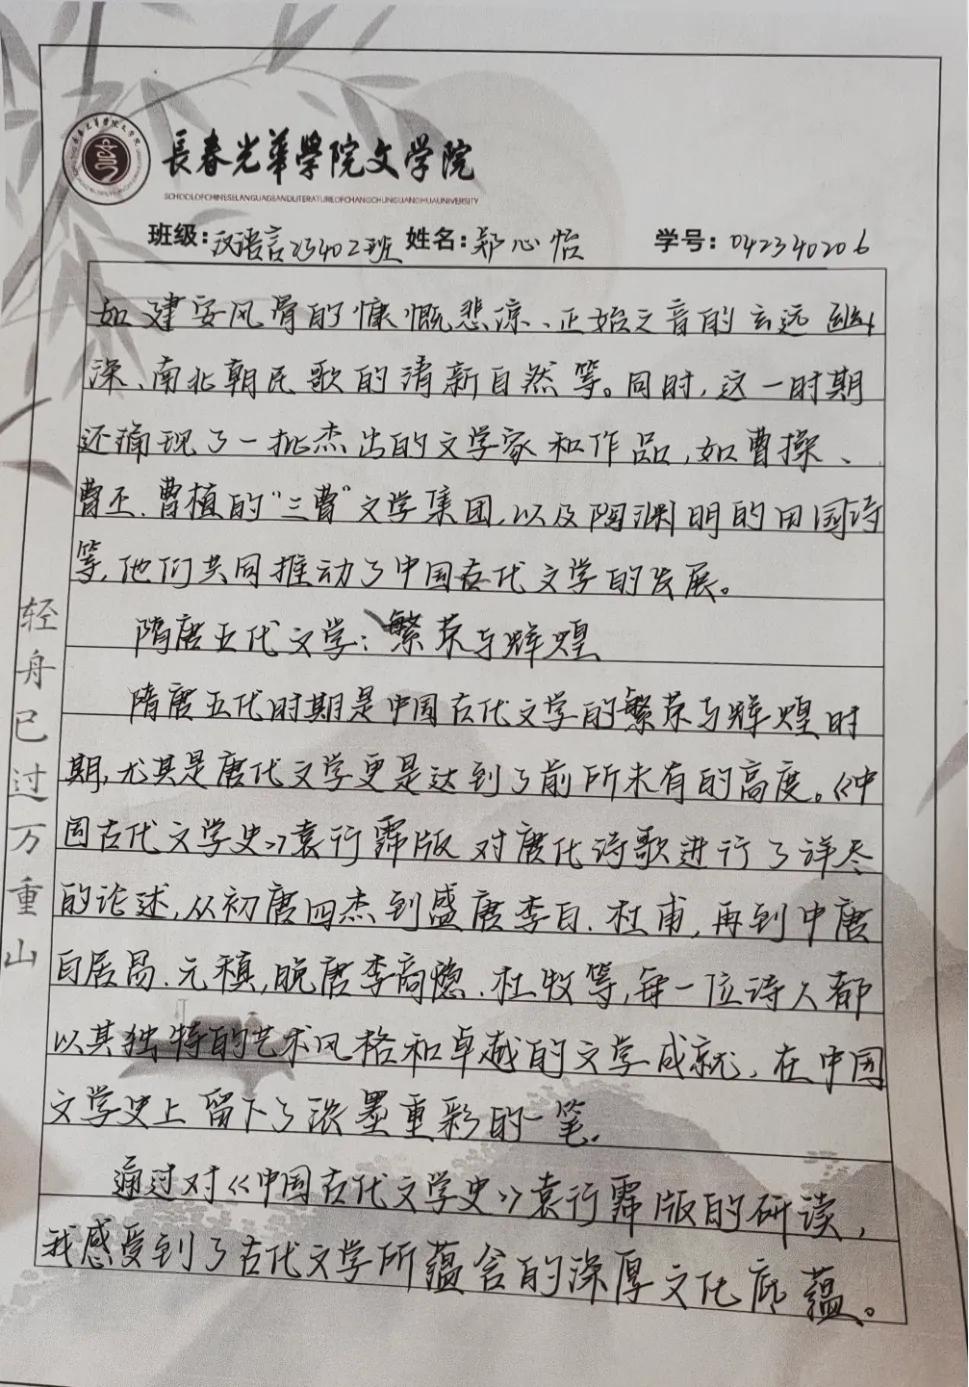 長春光華學院文学院
SCHOOLOFCHINESELANGUAGEANDLITERATUREOFCHANGCHUNGUANGHUAUNIVERSITY
班级:汉语言23402班 姓名:郑心怡 学号:042340206
如建安风骨的慷慨悲凉、正始之音的玄远幽
深、南北朝民歌的清新自然等。同时,这一时期
还涌现了一批杰出的文学家和作品,如曹操、
曹丕、曹植的"三曹"文学集团,以及陶渊明的田园诗
等,他们共同推动了中国古代文学的发展。
隋唐五代文学:繁荣与辉煌
隋唐五代时期是中国古代文学的繁荣与辉煌时
期,尤其是唐代文学更是达到了前所未有的高度。《中
国古代文学史》袁行霈版对唐代诗歌进行了详尽
的论述,从初唐四杰到盛唐李白、杜甫,再到中唐
白居易、元稹,晚唐李商隐、杜牧等,每一位诗人都
以其独特的艺术风格和卓越的文学成就,在中国
文学史上留下了浓墨重彩的一笔.
通过对《中国古代文学史》袁行霈版的研读,
我感受到了古代文学所蕴含的深厚文化底蕴。
轻舟已过万重山